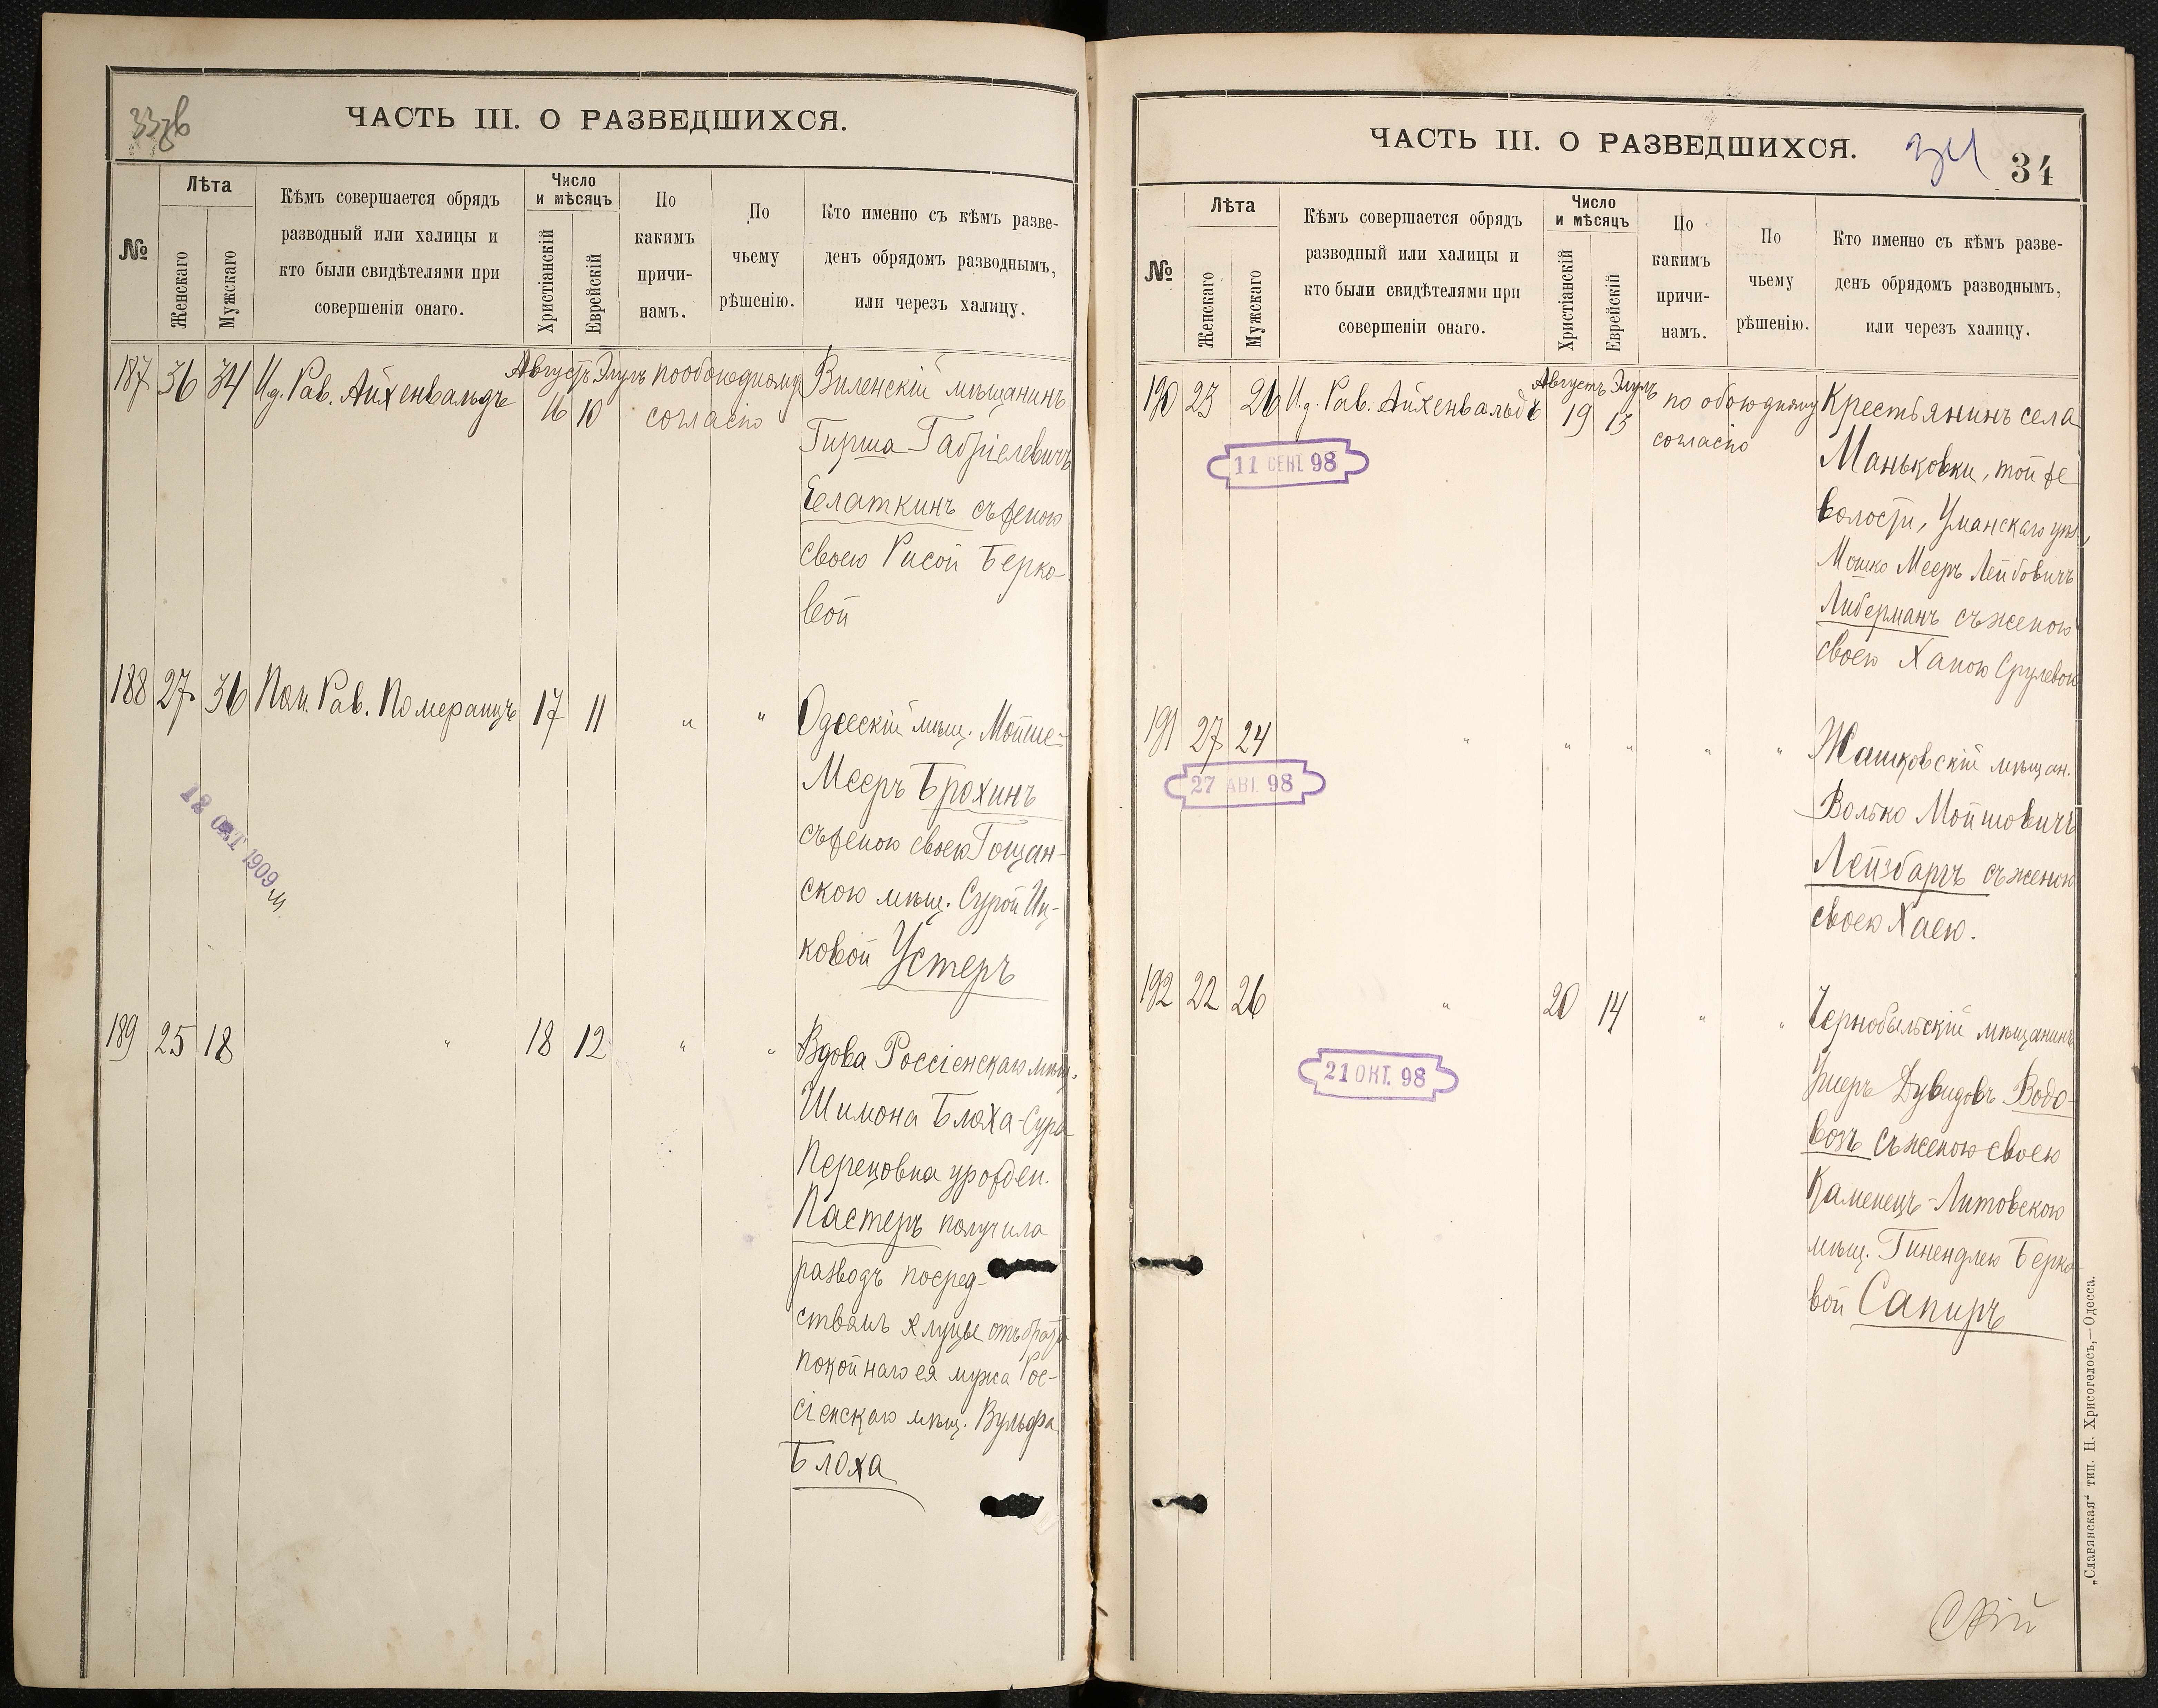 33 зв
ЧАСТЬ III. О РАЗВЕДШИХСЯ.
№
Лѣта
Женскаго
Мужскаго
Кѣмъ совершается обрядъ
разводный или халицы и
кто были свидѣтелями при
совершеніи онаго.
Число
и мѣсяцъ
Христіанскій
Еврейскій
По
какимъ
причи-
намъ.
По
чьему
рѣшенію.
Кто именно съ кѣмъ разве-
денъ обрядомъ разводнымъ,
или черезъ халицу.
187 36 34 И.д. Рав. Айхенвальдъ Августъ Элулъ по обоюдному Виленскій мѣщанинъ
16 10 согласію
Гирша-Габріелевичъ
Челаткинъ съ женою
своею Рисой Берко-
вой
188 27 36 Пом. Рав. Померанцъ 17 11 " " Одесскій мѣщ. Мойше-
Мееръ Брохинъ
съ женою своею Гощан-
скою мѣщ. Сурой Иц-
ковой Устеръ
12 ОКТ 1909
189 25 18 " 18 12 " " Вдова Россіенскаго мѣщ.
Шимона Блоха-Сура
Перецовна урожден.
Пастеръ получила
разводъ посред-
ствомъ хлуцы отъ брата
покойнаго ея мужа Рос-
сіенскаго мѣщ. Вульфа
Блоха
ЧАСТЬ III. О РАЗВЕДШИХСЯ.
34
34
№
Лѣта
Женскаго
Мужскаго
Кѣмъ совершается обрядъ
разводный или халицы и
кто были свидѣтелями при
совершеніи онаго.
Число
и мѣсяцъ
Христіанскій
Еврейскій
По
какимъ
причи-
намъ.
По
чьему
рѣшенію.
Кто именно съ кѣмъ разве-
денъ обрядомъ разводнымъ,
или черезъ халицу.
190 23 26 И.д. Рав. Айхенвальдъ Августъ Элулъ по обоюдному Крестьянинъ села
19 13 согласію
11 СЕНТ. 98
Маньковки, той же
волости, Уманскаго уѣз.,
Мошко Мееръ Лейбовичъ
Либерманъ съ женою
своею Ханою Срулевою
191 27 24 " " " " " Жашковскій мѣщан.
27 АВГ. 98
Волько Мойшовичъ
Лейзбаргъ съ женою
своею Хаею.
192 22 26 " 20 14 " " Чернобыльскій мѣщанинъ
21 ОКТ. 98
Ушеръ Дувидовъ Водо-
возъ съ женою своею
Каменецъ-Литовскою
мѣщ. Гинендлею Берко-
вой Сапиръ
„Славянская“ тип. Н. Хрисогелосъ,—Одесса.